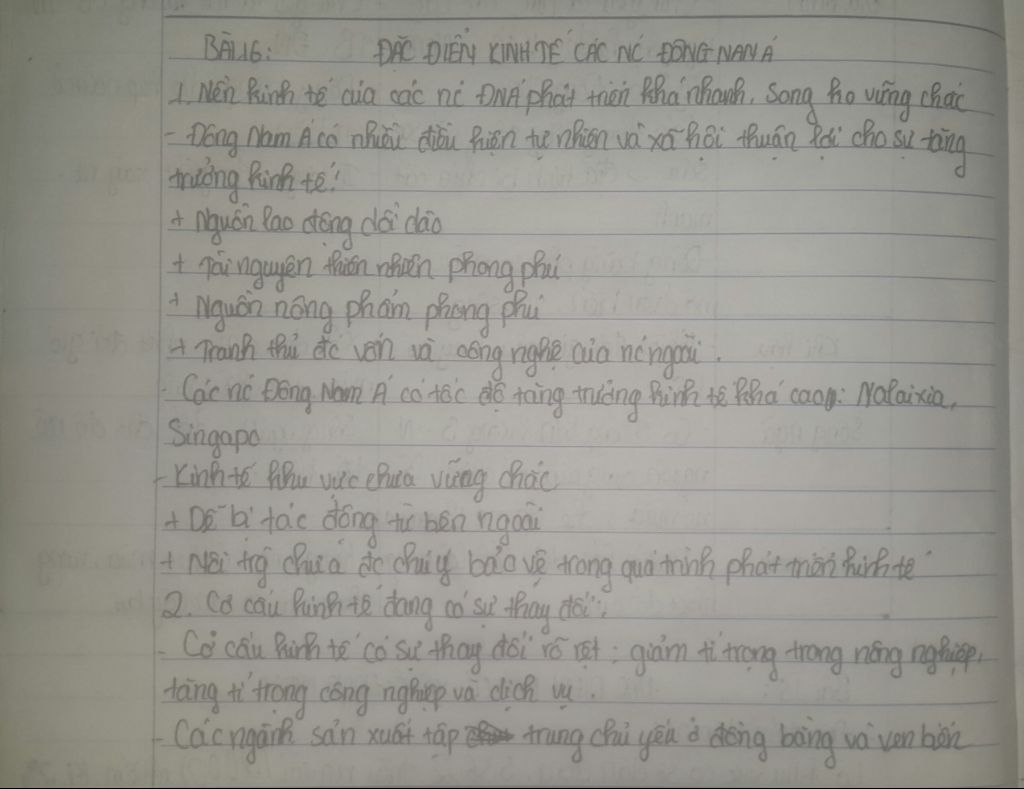 BÀI 16: ĐẶC ĐIỂM KINH TẾ CÁC NC ĐÔNG NAM Á
1. Nền kinh tế của các nc ĐNÁ phát triển khá nhanh, song ko vững chắc
- Đông Nam Á có nhiều điều kiện tự nhiên và xã hội thuận lợi cho sự tăng
trưởng kinh tế:
+ Nguồn lao động dồi dào
+ Tài nguyên thiên nhiên phong phú
+ Nguồn nông phẩm phong phú
+ Tranh thủ đc vốn và công nghệ của nc ngoài.
- Các nc Đông Nam Á có tốc độ tăng trưởng kinh tế khá cao: Malaixia,
Singapo
- Kinh tế khu vực chưa vững chắc
+ Dễ bị tác động từ bên ngoài
+ Môi trg chưa đc chú ý bảo vệ trong quá trình phát triển kinh tế
2. Cơ cấu kinh tế đang có sự thay đổi:
- Cơ cấu kinh tế có sự thay đổi rõ rệt: giảm tỉ trọng trong nông nghiệp,
tăng tỉ trọng công nghiệp và dịch vụ.
- Các ngành sản xuất tập trung chủ yếu ở đồng bằng và ven biển